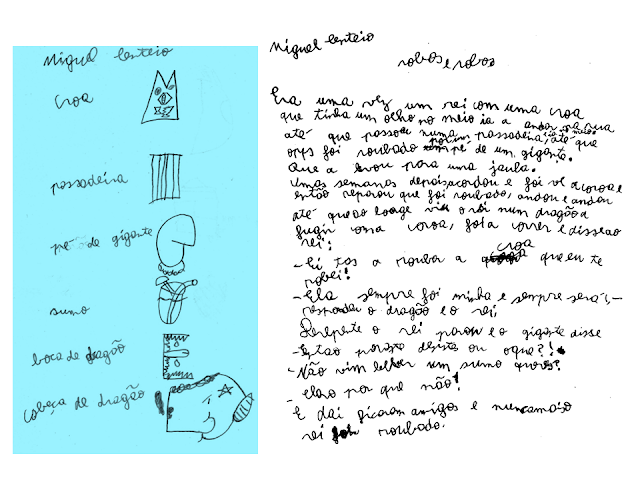 Miguel
croa
passadeira
pé de gigante
sumo
boca de dragão
cabeça de dragão
Miguel
robos e robos
Era uma vez um rei com uma croa
que tinha um olho no meio ia a andar na rua
até que passou numa passadeira, até que
foi roubado por um pé de um gigante.
Que a levou para uma jaula.
Umas semanas depois acordou e foi vê a coroa e
então reparou que foi roubado, andou e andou
até que ao longe viu o rei num dragão a
fugir com a croa, foi a correr e disse ao
rei:
- Ei tas a roubar a croa que eu te
robei!
- Ela sempre foi minha e sempre será, -
respondeu o dragão e o rei
Derepete o rei parou e o gigante disse
- Estao porque desistes ou oque?!
- Não vim beber um sumo queres?
- claro por que não!
E dai ficaram amigos e nuncamais o
rei foi roubado.